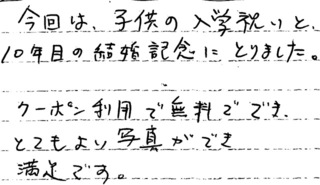 今回は、子供の入学祝いと、
10年目の結婚記念にとりました。
クーポン利用で無料ででき、
とてもよい写真ができ
満足です。